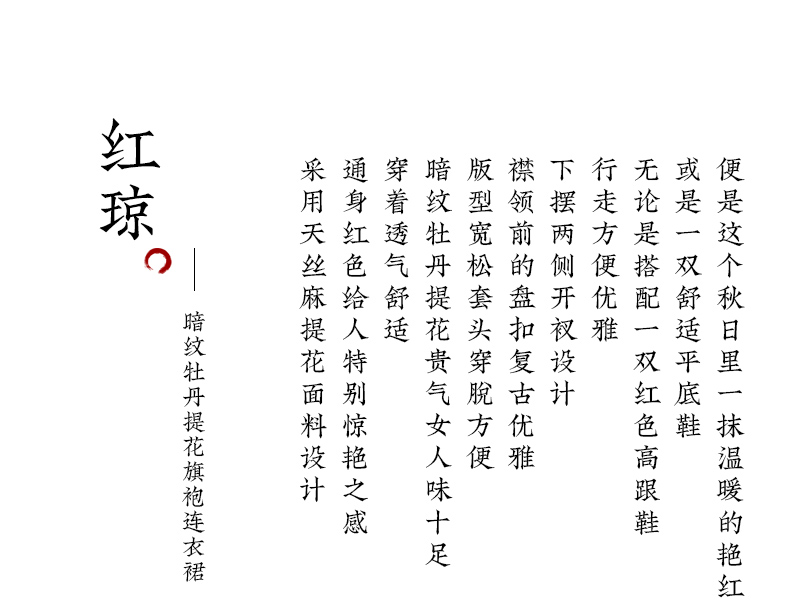 红琼
——暗纹牡丹提花旗袍连衣裙
采用天丝麻提花面料设计
通身红色给人特别惊艳之感
穿着透气舒适
暗纹牡丹提花贵气女人味十足
版型宽松套头穿脱方便
襟领前的盘扣复古优雅
下摆两侧开衩设计
行走方便优雅
无论是搭配一双红色高跟鞋
或是一双舒适平底鞋
便是这个秋日里一抹温暖的艳红